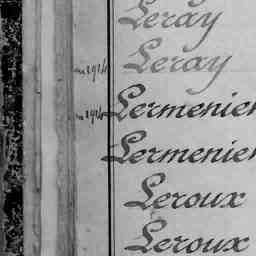 Leray
1914 Leray
1914 Lermenier
Lermenier
Leroux
Leroux